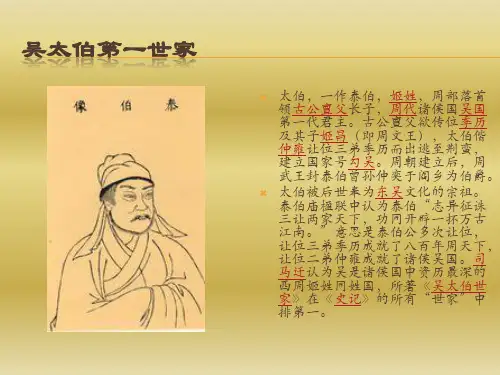 吴太伯第一世家
像 伯 泰
太伯，一作泰伯，姬姓、周部落首
领古公亶父长子，周代诸侯国吴国
第一代君主。古公亶父欲传位季历
及其子姬昌（即周文王），太伯偕
仲雍让位三弟季历而出逃至荆蛮，
建立国家号勾吴。周朝建立后，周
武王封泰伯曾孙仲奕于阎乡为伯爵。
太伯被后世奉为东吴文化的宗祖。
泰伯庙楹联中认为泰伯“志异征诛
三让两家天下，功同开辟一抔万古
江南。”意思是泰伯公多次让位，
让位三弟季历成就了八百年周天下，
让位二弟仲雍成就了诸侯吴国。司
马迁认为吴是诸侯国中资历最深的
西周姬姓同姓国，所著《吴太伯世
家》在《史记》的所有“世家”中
排第一。